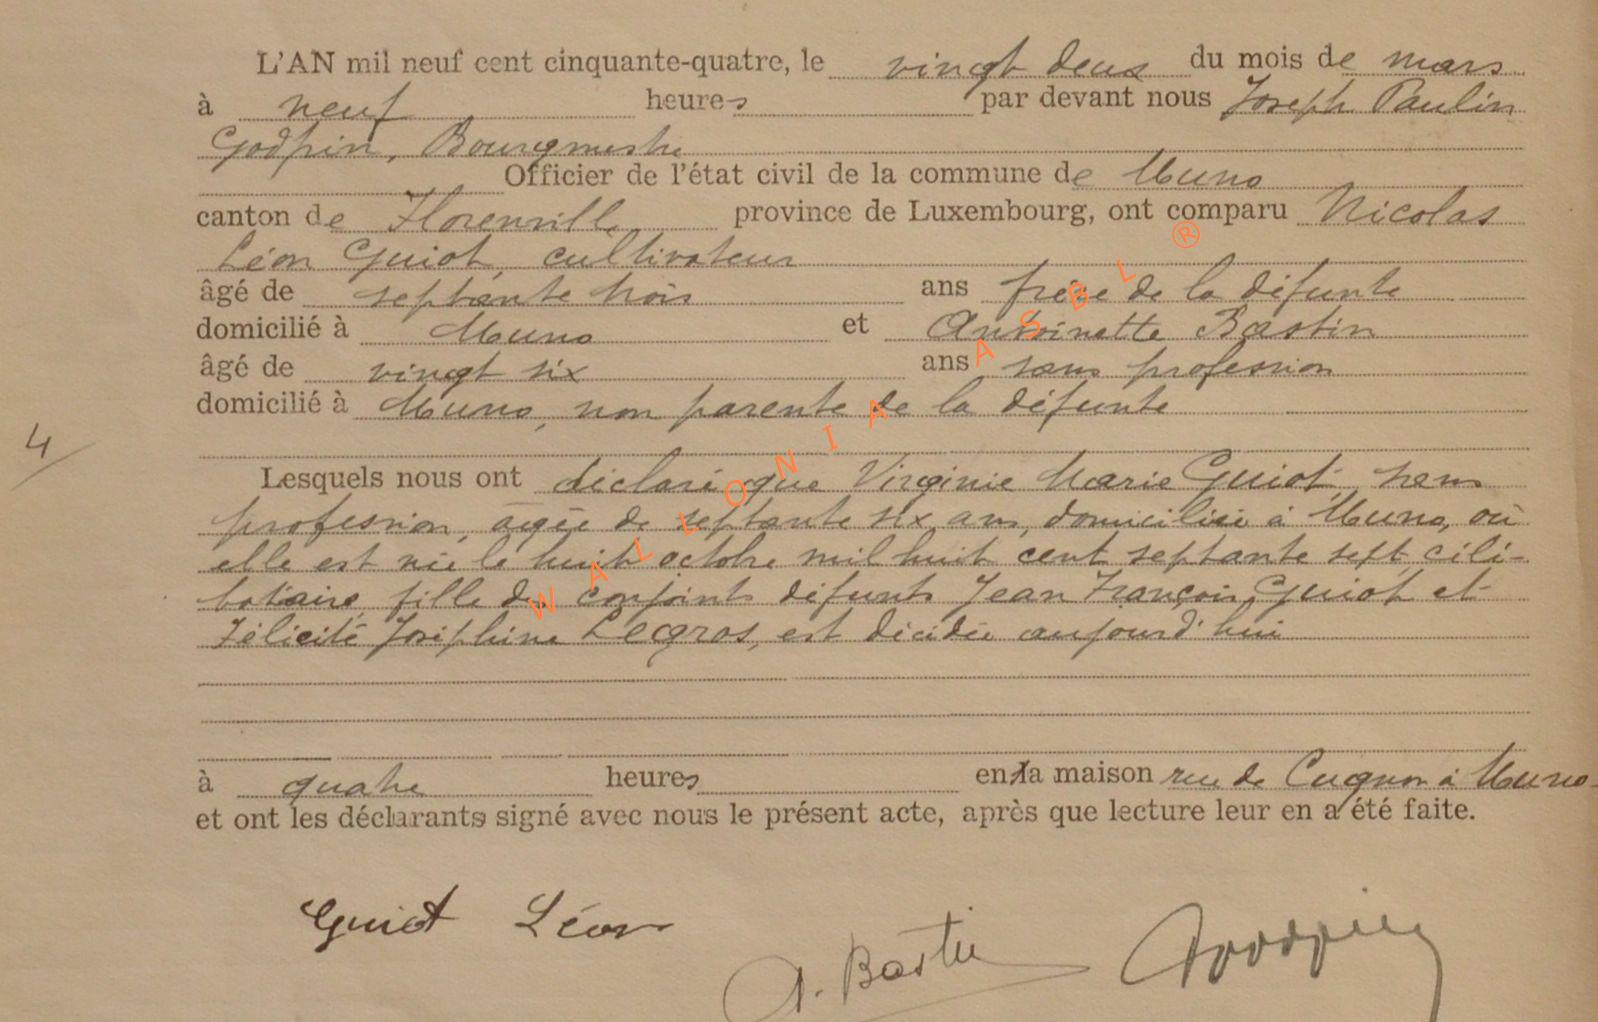 L'AN mil neuf cent cinquante-quatre, le vingt deux du mois de mars
à neuf heures par devant nous Joseph Paulin
Godfrin, Bourgmestre
Officier de l'état civil de la commune de Muno
canton de Florenville province de Luxembourg, ont comparu Nicolas
Léon Guiot, cultivateur
âgé de septante trois ans frère de la défunte
domicilié à Muno et Antoinette Bastin
âgé de vingt six ans sans profession
domicilié à Muno, non parente de la défunte
4
Lesquels nous ont déclaré que Virginie Marie Guiot, sans
profession, âgée de septante six ans, domiciliée à Muno, où
elle est née le huit octobre mil huit cent septante sept, céli-
bataire, fille des conjoints défunts Jean François Guiot et
Félicité Joséphine Legros, est décédée aujourd'hui
à quatre heures en la maison rue de Cugnon à Muno
et ont les déclarants signé avec nous le présent acte, après que lecture leur en a été faite.
Guiot Léon
A. Bastin
Godfrin
WALLONIA ASBL ®